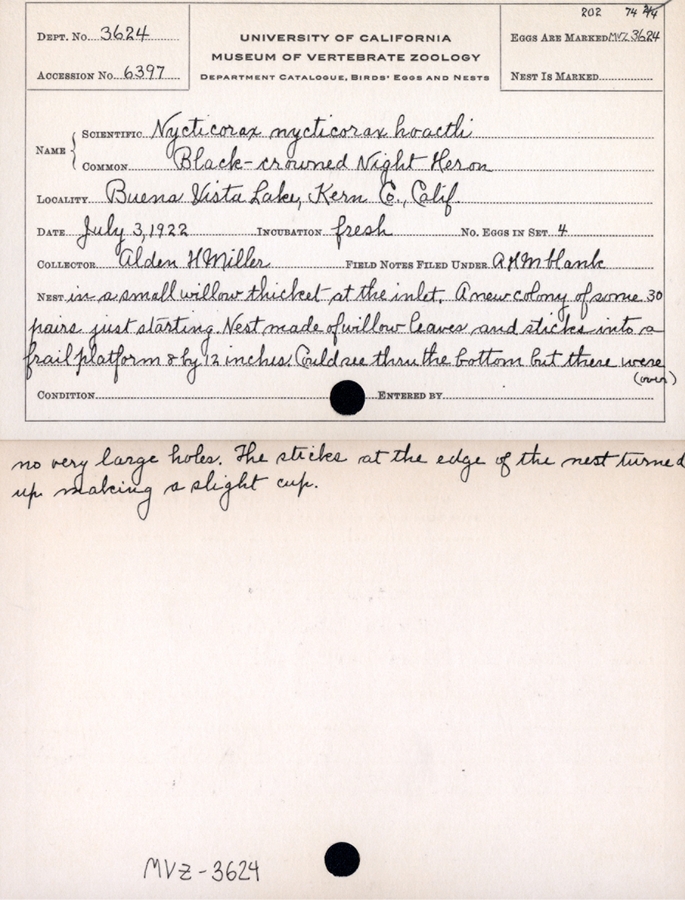 202 74 2/4
DEPT. NO. 3624
UNIVERSITY OF CALIFORNIA
EGGS ARE MARKED MVZ 3624
MUSEUM OF VERTEBRATE ZOOLOGY
ACCESSION NO. 6397
DEPARTMENT CATALOGUE, BIRDS' EGGS AND NESTS
NEST IS MARKED
NAME
SCIENTIFIC Nycticorax nycticorax hoactli
COMMON Black-crowned Night Heron
LOCALITY Buena Vista Lake, Kern Co., Calif.
DATE July 3, 1922 INCUBATION fresh NO. EGGS IN SET 4
COLLECTOR Alden H Miller FIELD NOTES FILED UNDER AHM blank
NEST in a small willow thicket at the inlet. A new colony of some 30
pairs just starting. Nest made of willow leaves and sticks into a
frail platform 8 by 12 inches. Could see thru the bottom but there were
(over)
CONDITION ENTERED BY
no very large holes. The sticks at the edge of the nest turned
up making a slight cup.
MVZ-3624